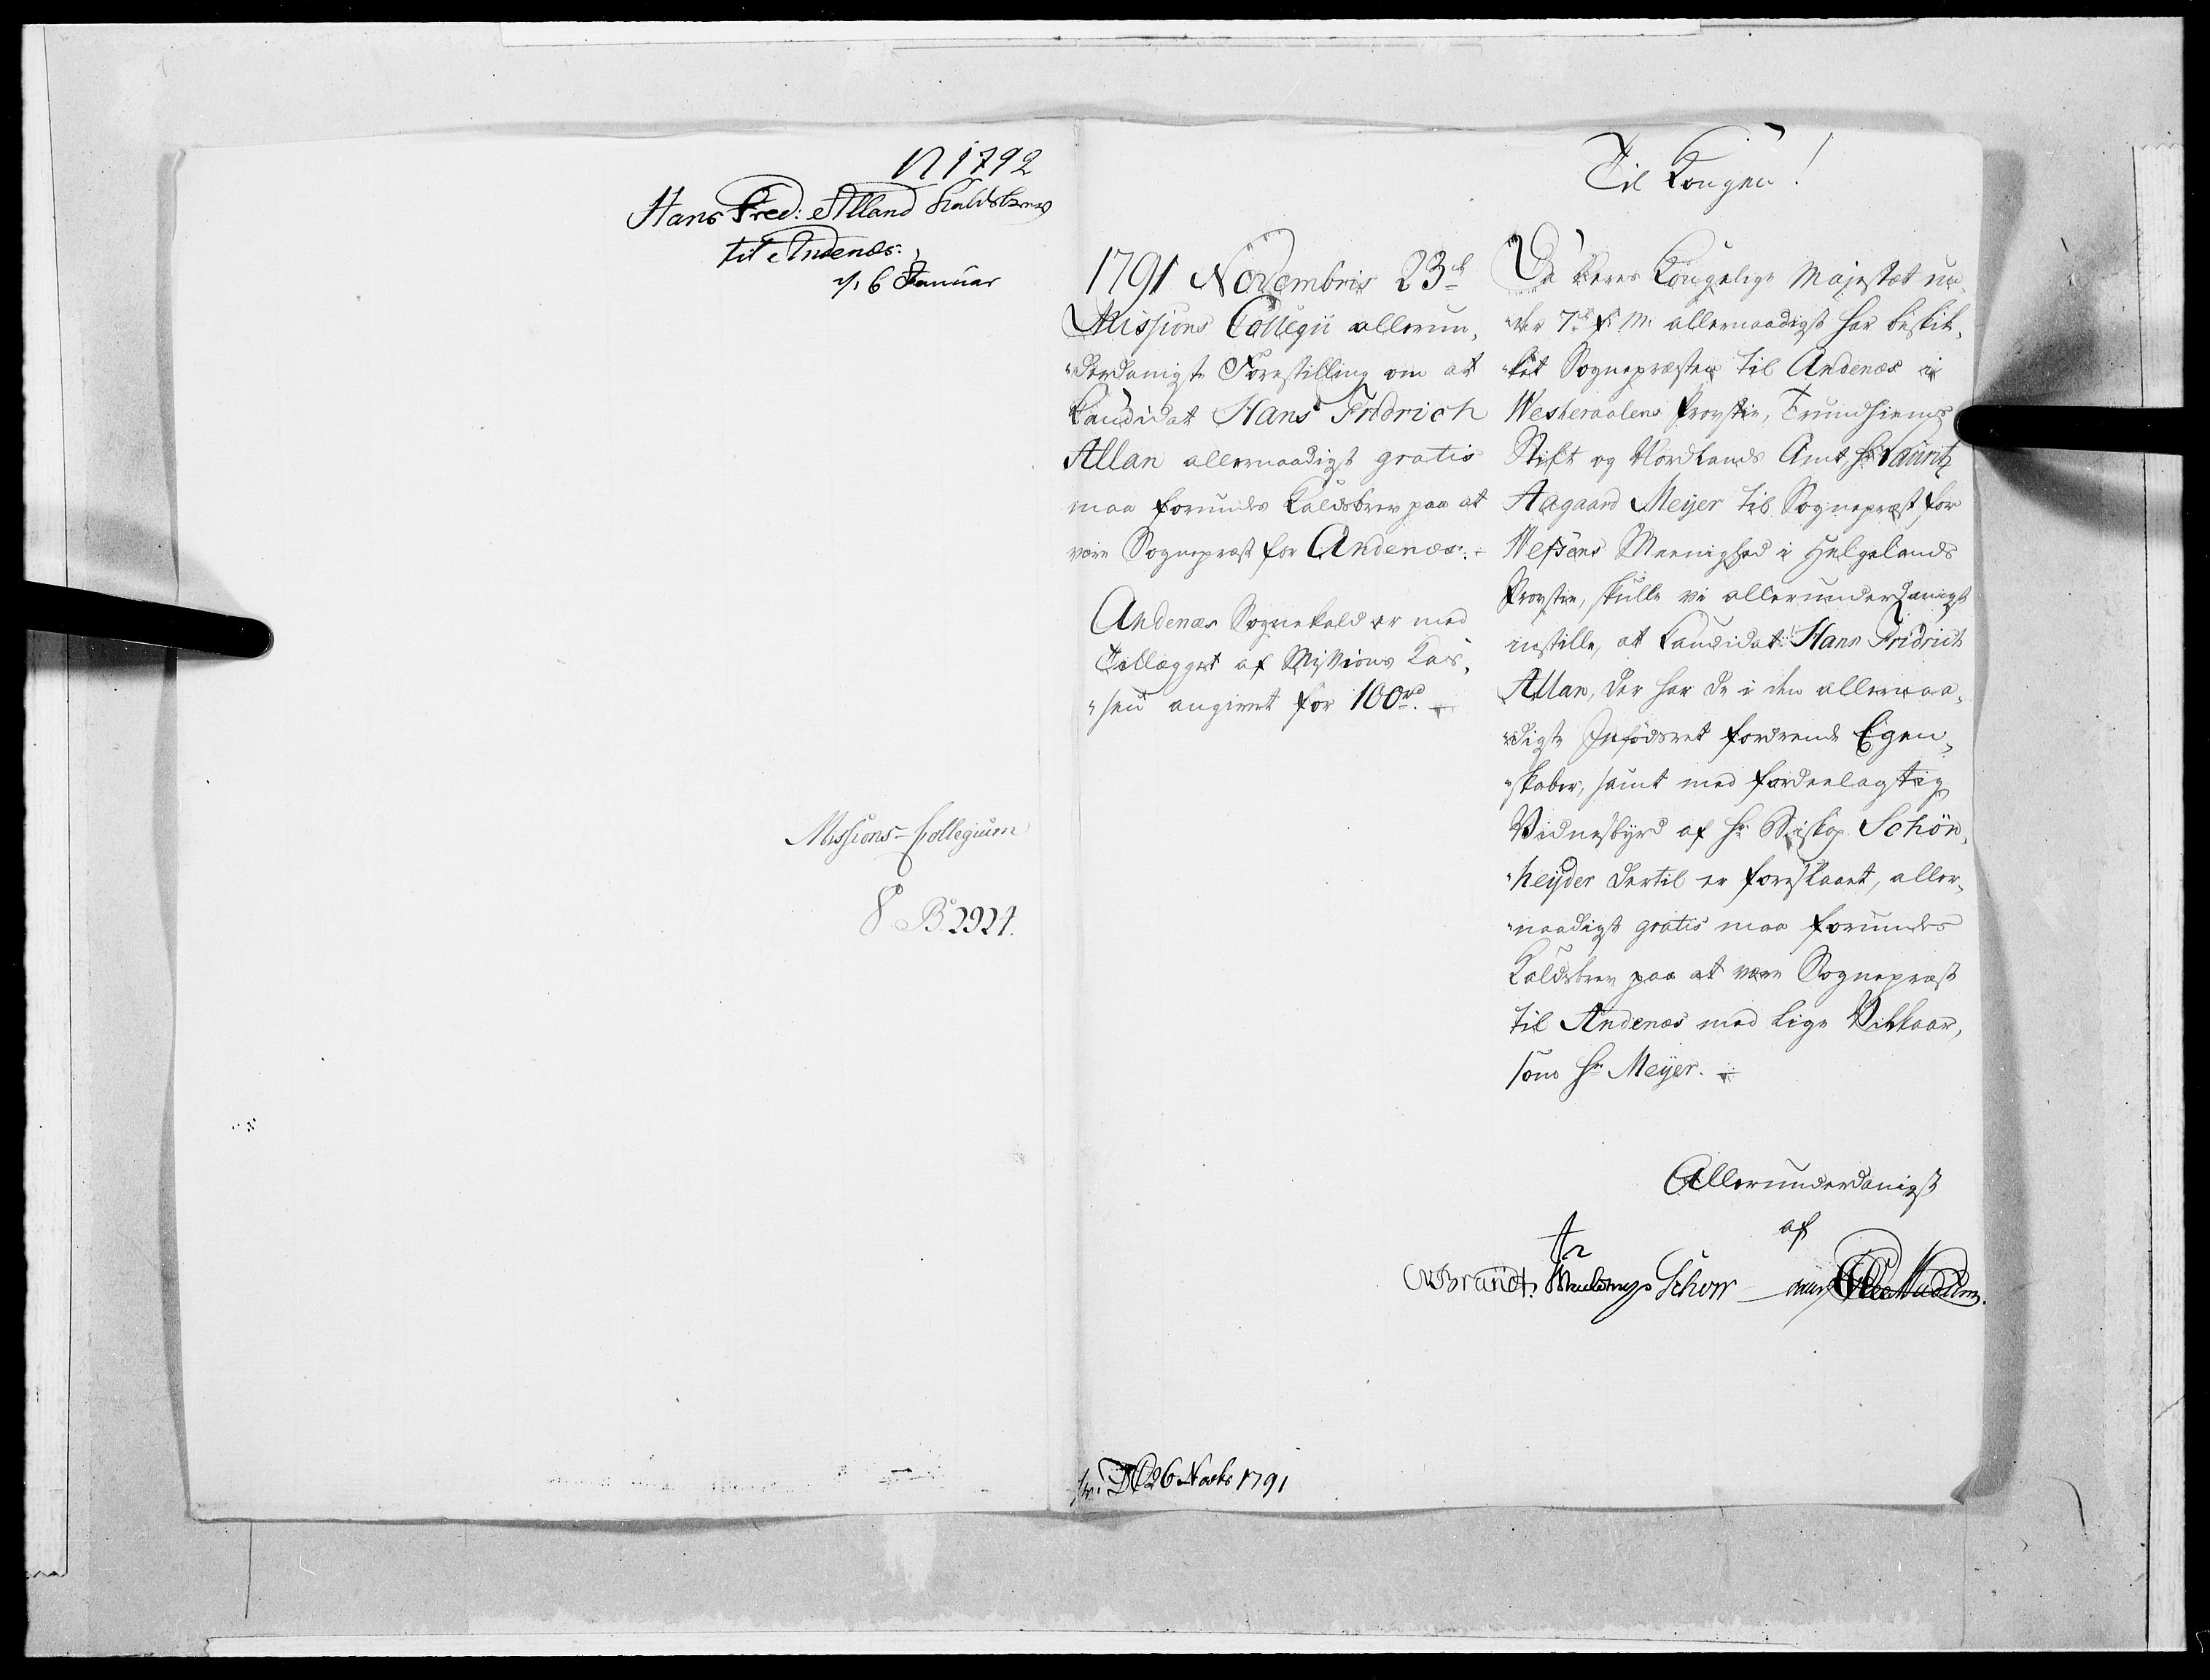 N 1792
Hans Fred: Alland Kaldsbrev
til Andenæs:
d. 6 Januar
Missions-Collegium
8 B. 2924.
1791 Novembris 23de
Missions Collegii allerun-
"derdanigste Forestilling om at
Candidat Hans Fridrich
Allan allernaadigst gratis
maa forundes Kaldsbrev paa at
være Sognepræst for Andenæs.
Andenæs Sognekald er med
Tillægget af Missions Cas-
"sen angivet for 100 rd.
Til Kongen!
Da Deres Kongelige Majestæt un-
"der 7de f. M. allernaadigst har beskik-
"ket Sognepræsten til Andenæs i
Westeraalens Provstie, Trundhiems
Stift og Nordlands Amt, Hr Lauritz
Aagaard Meyer til Sognepræst for
Wefsens Meenighed i Helgelands
Provstie, skulle vi allerunderdanigst
instille, at Candidat Hans Fridrich
Allan, der har de i den allernaa-
"digste Infödsret fordrende Egen-
"skaber, samt med fordeelagtig
Vidnesbyrd af Hr Biskop Schön-
"heyder dertil er foreslaaet, aller-
"naadigst gratis maa forundes
Kaldsbrev paa at være Sognepræst
til Andenæs med lige Vilkaar,
som Hr Meyer.
Allerunderdanigst
af
Brandt. Schow
26 Novbr 1791